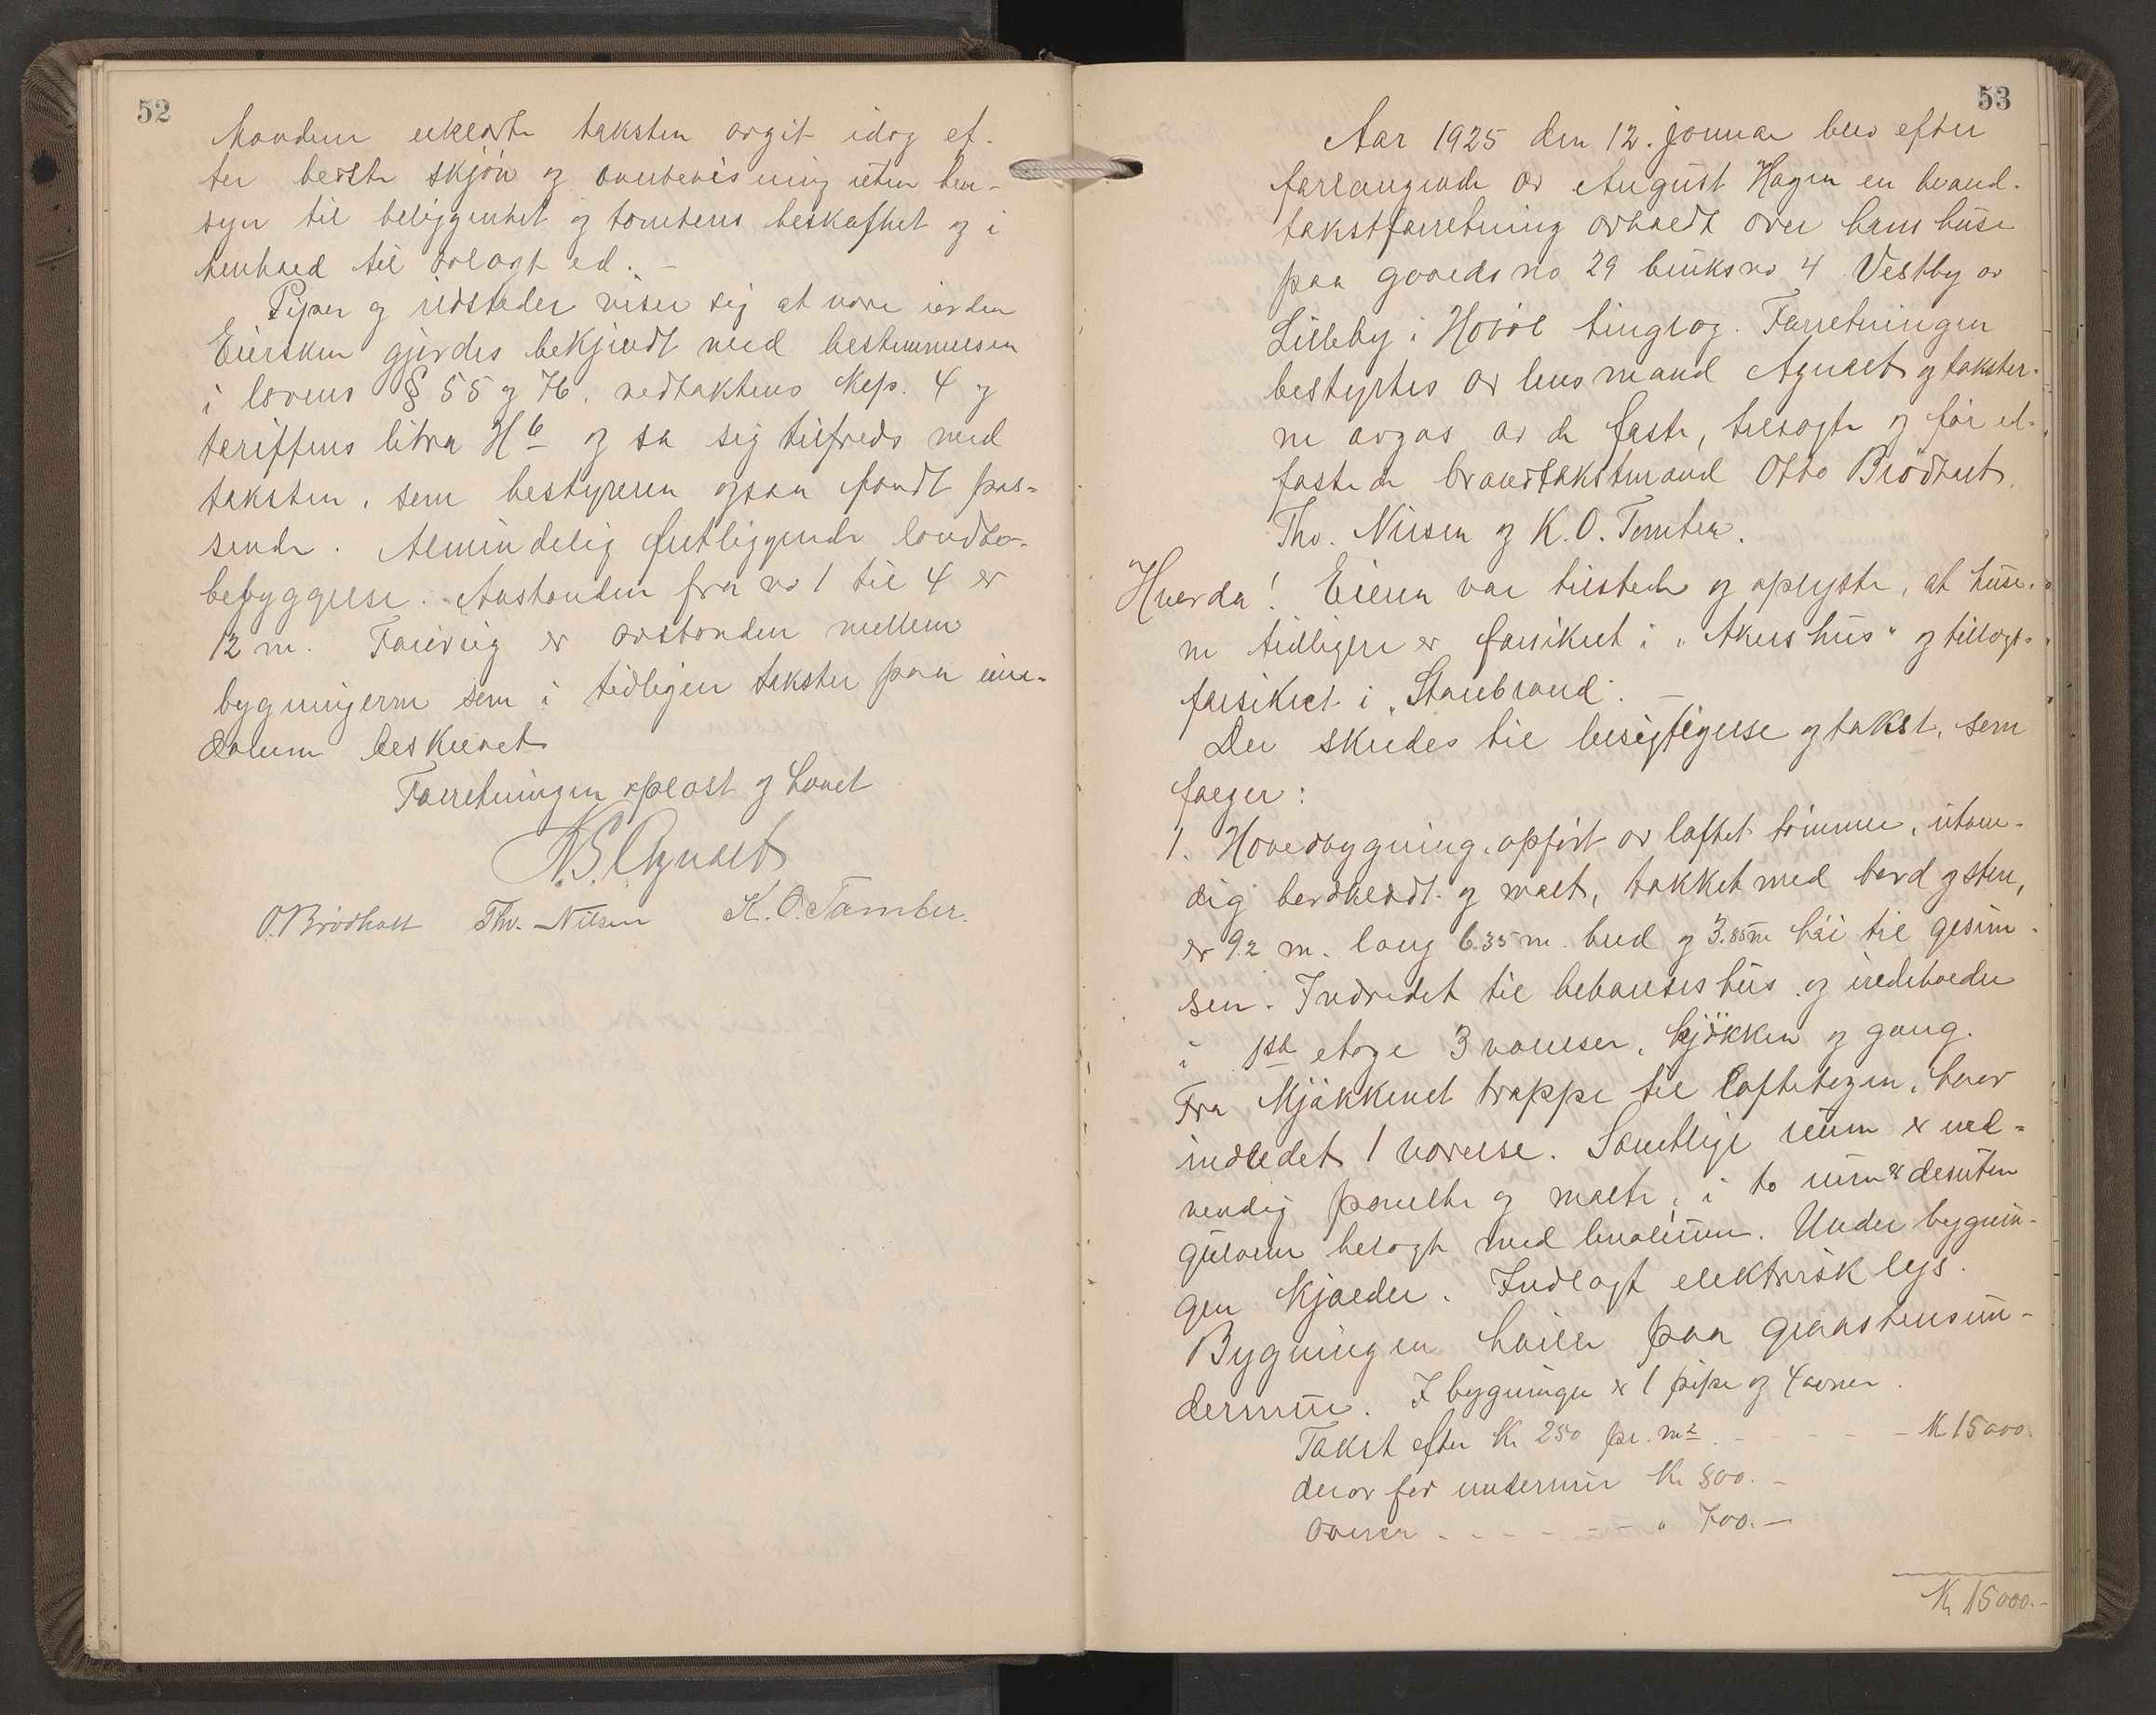 52
Mændene erklærte taksten avgit idag ef-
ter bedste skjøn og overbevisning uten hen-
syn til beliggenhet og tomtens beskaffenhet og i
henhold til avlagt ed. –
Piper og ildsteder viser sig at være i orden
Eiersken gjordes bekjendt med bestemmelsen
i lovens § 55 og 76, vedtaktens Kap. 4 og
tariffens litra H b og sa sig tilfreds med
taksten, som bestyreren ogsaa fandt pas-
sende. Almindelig fritliggende landbo-
bebyggelse. Avstanden fra no 1 til 4 er
12 m. Forøvrig er avstanden mellem
bygningerne som i tidligere takster paa eien-
dommen beskrevet
Forretningen oplæst og hævet
N. S. Agnalt
O. Brødholt Thv. Nilsen K. O. Tomter.
53
Aar 1925 den 12. januar blev efter
forlangende av August Hagen en brand-
takstforretning avholdt over hans huse
paa gaards no 29 bruks no 4 Vestby av
Lilleby i Hobøl tinglag. Forretningen
bestyrtes av lensmand Agnalt og takster-
ne avgas av de faste, tilsagte og før ed-
fæstede brandtakstmænd Otto Brødholt,
Thv. Nilsen og K. O. Tomter.
Hvorda! Eieren var tilstede og oplyste, at huse-
ne tidligere er forsikret i "Akershus" og tillægs-
forsikret i "Storebrand". –
Der skredes til besigtigelse og takst, som
følger:
1. Hovedbygning, opført av laftet tømmer, utven-
dig bordklædt og malt, tækket med bord og sten,
er 9.2 m. lang 6.35 m. bred og 3.85 m høi til gesim-
sen. Indredet til beboelseshus og indeholder
i 1ste etage 3 værelser, kjøkken og gang.
Fra Kjøkkenet trappe til loftetagen, hvor
indredet 1 værelse. Samtlige rum er ind-
vendig panelte og malte, i to rum er desuten
gulvene belagt med linolium. Under bygnin-
gen kjælder. Indlagt elektrisk lys.
Bygningen hviler paa graastensun-
dermur. I bygningen er 1 pipe og 4 ovner.
Takst efter Kr 250 pr. m2 - - - - - Kr 15000.
derav for undermur Kr 800. –
Ovner - - - - - - " 700. –
Kr 15000. –